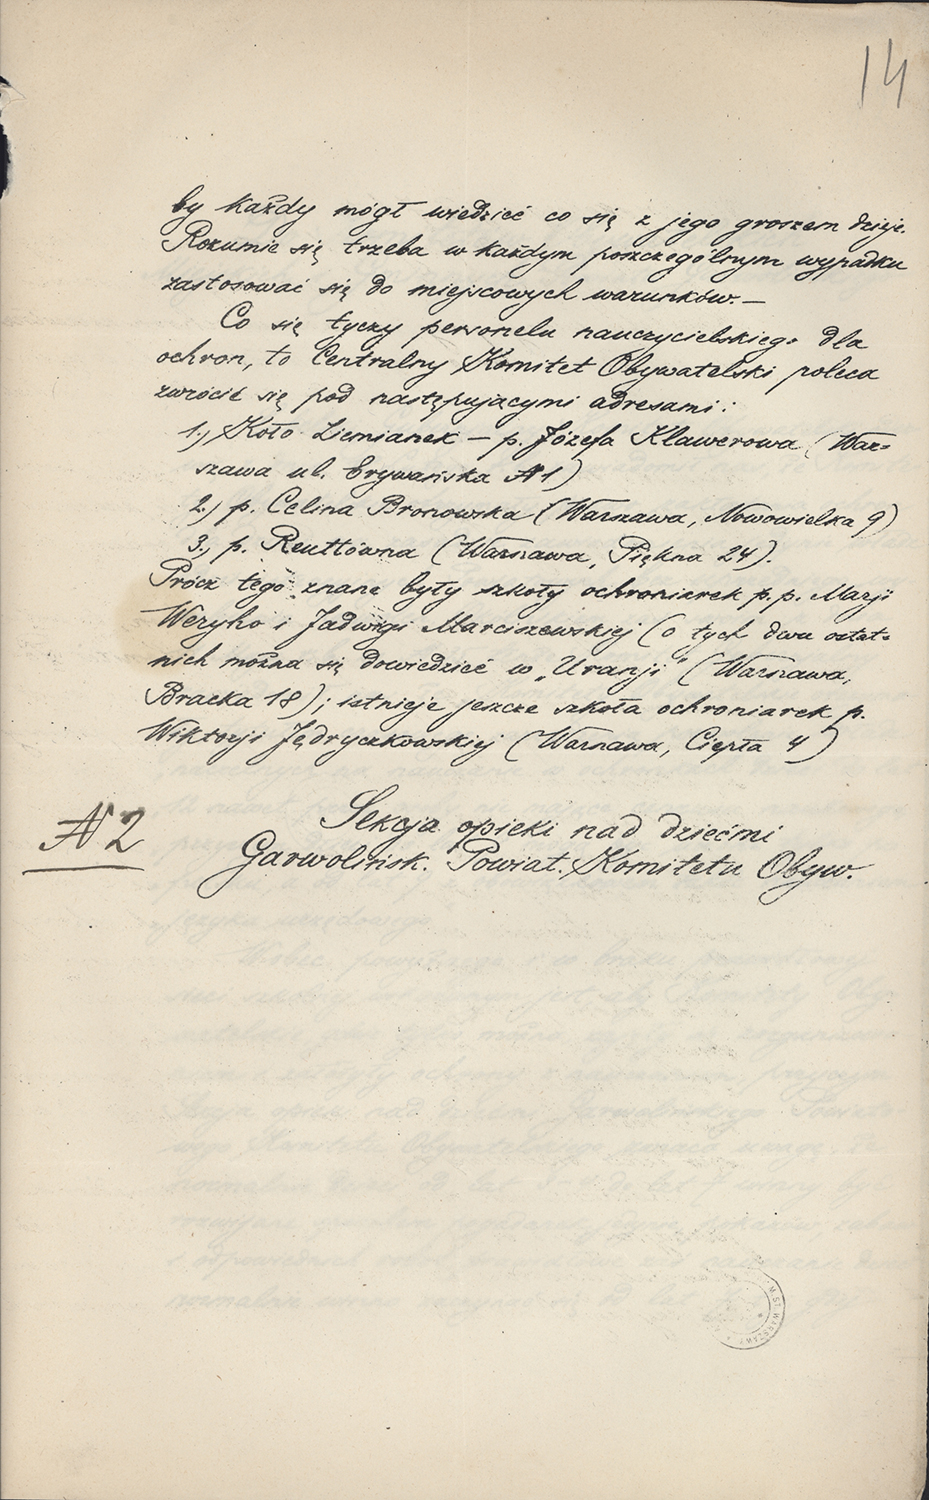 14
by każdy mógł wiedzieć co się z jego groszem dzieje.
Rozumie się trzeba w każdym poszczególnym wypadku
zastosować się do miejscowych warunków. —
Co się tyczy personelu nauczycielskiego dla
ochron, to Centralny Komitet Obywatelski poleca
zwrócić się pod następującymi adresami:
1.) Koło Ziemianek — p. Józefa Klawerowa (War-
szawa ul. Erywańska № 1)
2.) p. Celina Bronowska (Warszawa, Nowowielka 9)
3.) p. Reuttówna (Warszawa, Piękna 24).
Prócz tego znane były szkoły ochroniarek p.p. Marji
Weryho i Jadwigi Marciszewskiej (o tych dwu ostat-
nich można się dowiedzieć w „Uranji" (Warszawa,
Bracka 18); istnieje jeszcze szkoła ochroniarek p.
Wiktorji Jędryczkowskiej (Warszawa, Ciepła 4)
№ 2
Sekcja opieki nad dziećmi
Garwolińsk. Powiat. Komitetu Obyw.
M. ST. WARSZAWY